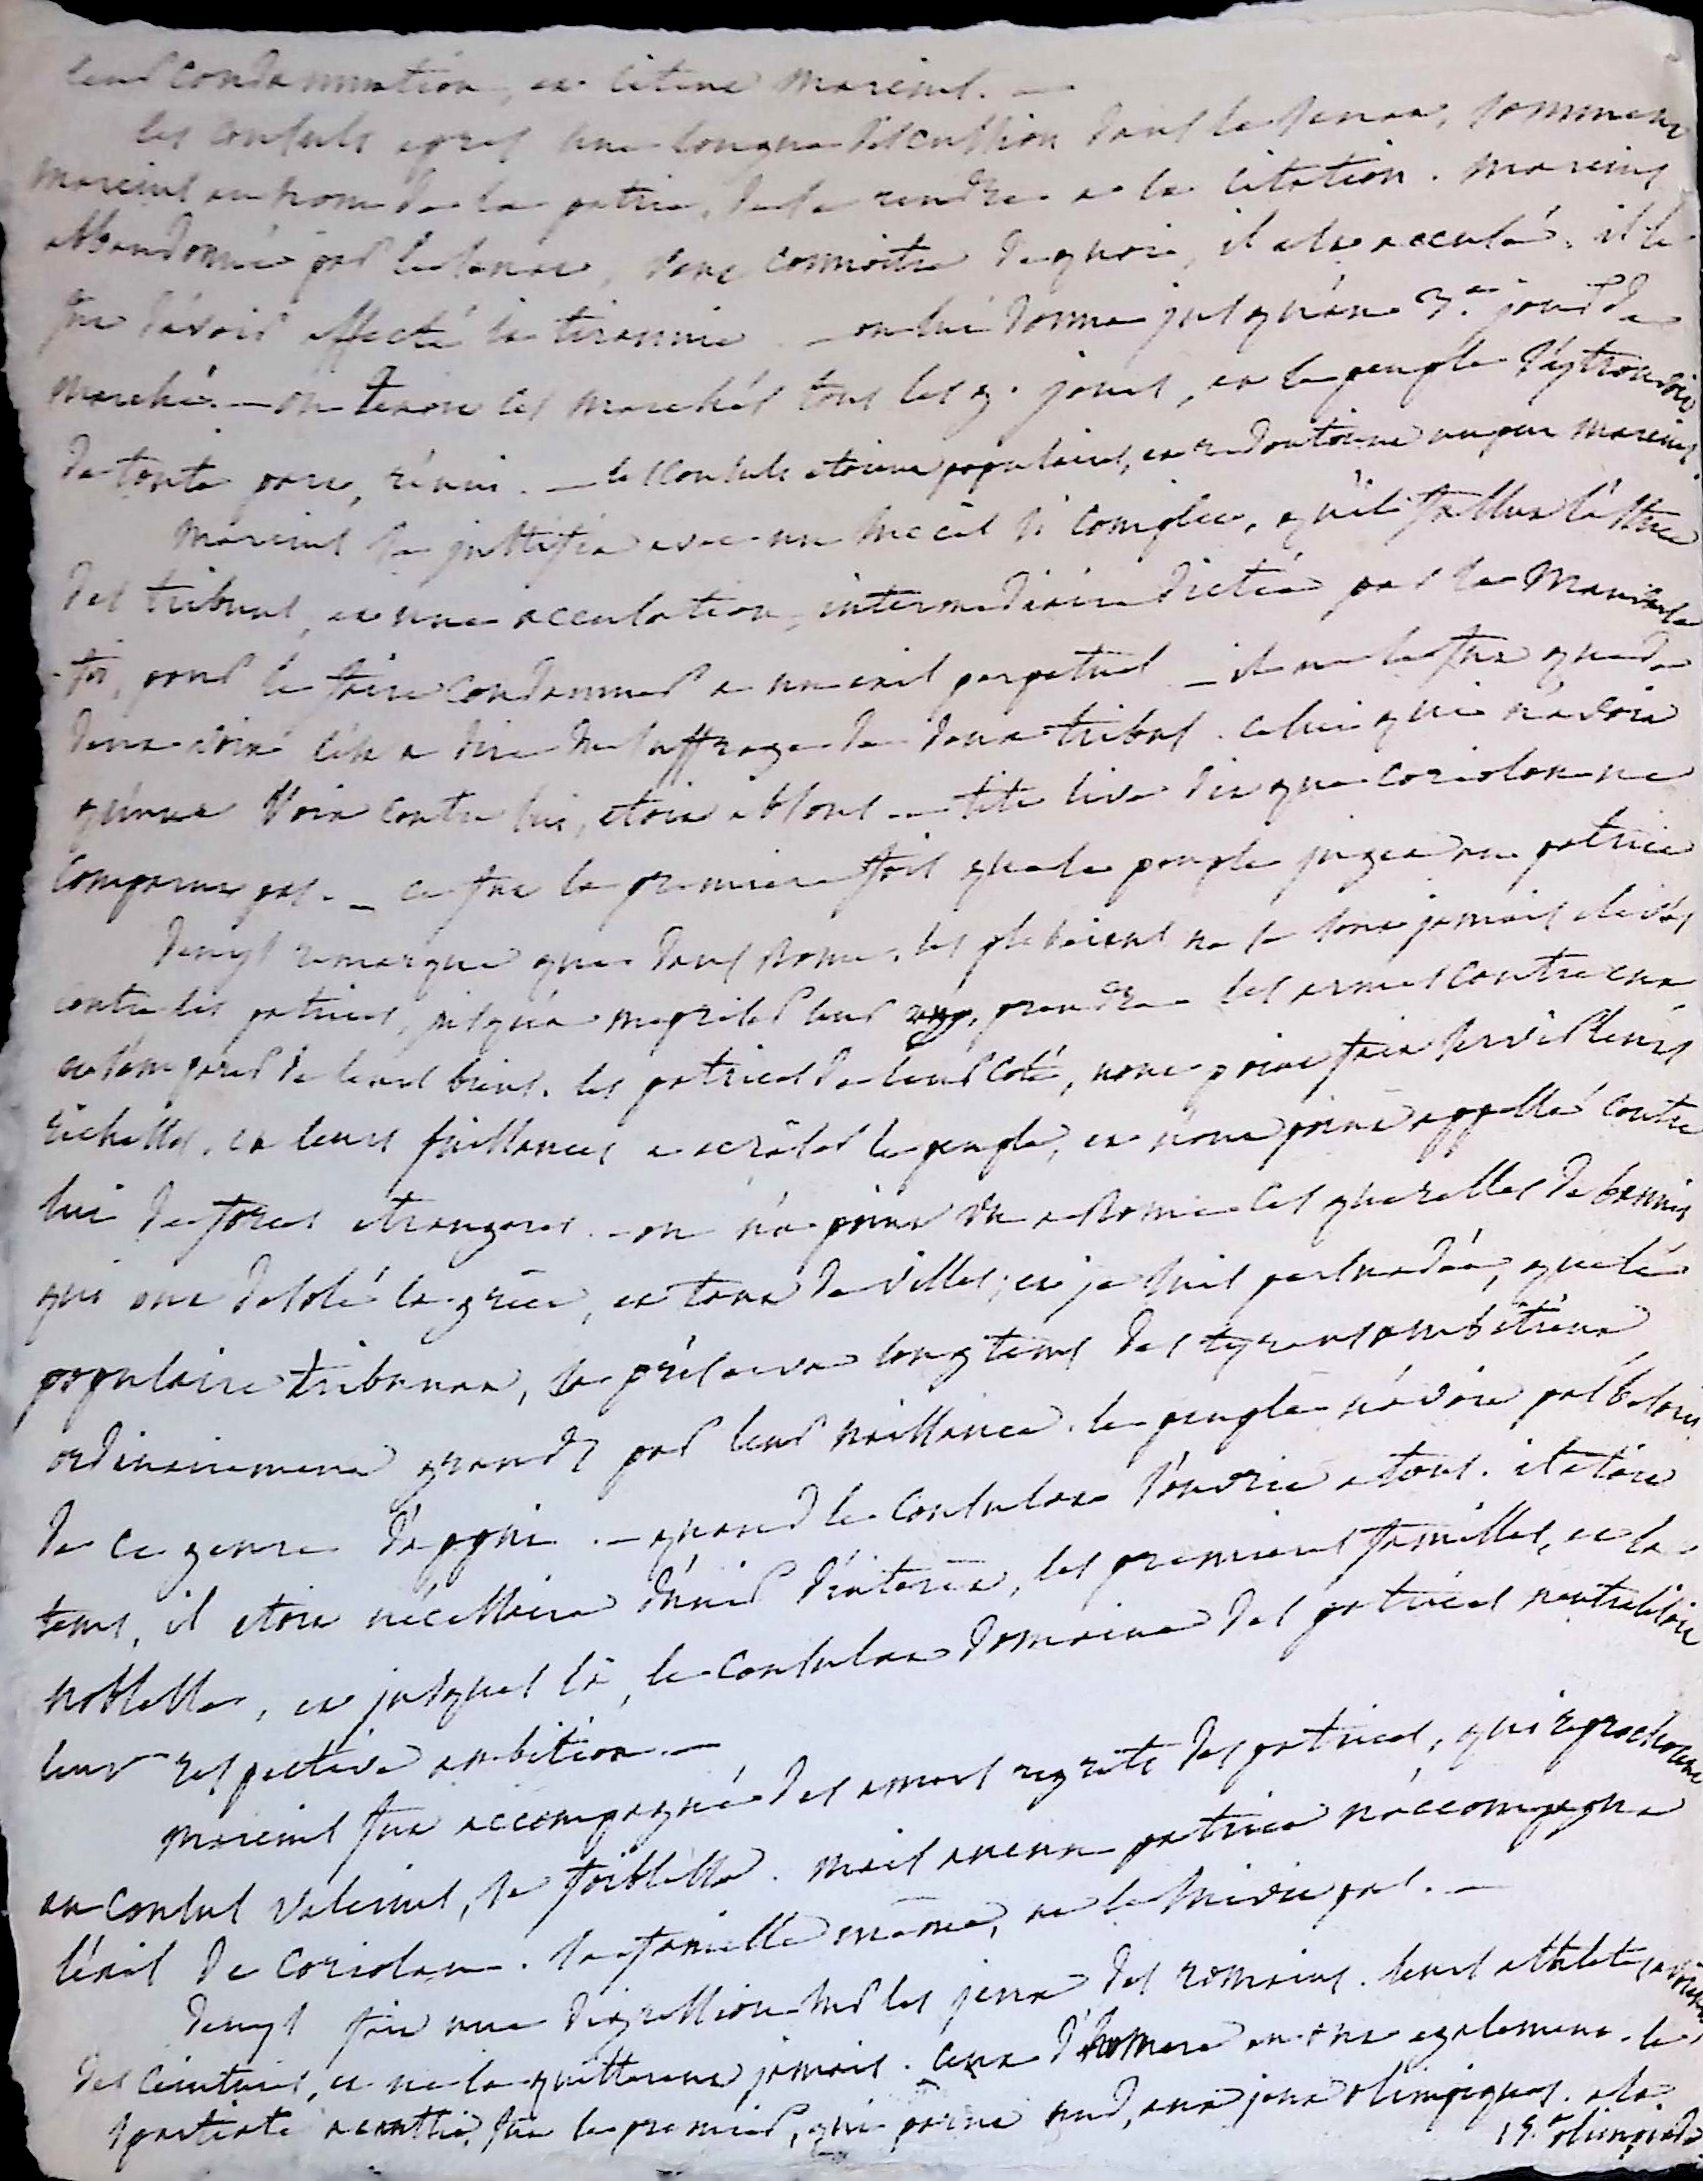 leur condamnation, et citent marcius. —
les consuls apres une longue discussion dans le senat, somment
marcius au nom de la patrie, de se rendre a la citation. marcius
abbandonné par le senat, veut connoitre de quoi, il est accusé. il le
fut d'avoir affecté la tirannie. — on lui donna jusqu'au 3.e jour de
marché. — on tenoit les marchés tous les 9. jours, et le peuple s'y trouvoit
de toute part, réuni. — les consuls etoient populaires, et redoutoient un peu marcius.
marcius se justifia avec un succès si complet, qu'il fallut l'astuce
des tribuns, et une accusation, intermediaire dictée par la mauvaise
foi, pour le faire condamner a un exil perpetuel — il ne le fut que de
deux voix c'est a dire du suffrage de deux tribus. celui qui n'avoit
qu'une voix contre lui, etoit absous — tite live dit que coriolan ne
comparut pas. — ce fut la premiere fois que le peuple jugea un patrice
denys remarque que dans rome, les plebeiens ne se sont jamais elevés
contre les patrices, jusqu'a mepriser leur prendre les armes contre eux,
et s'emparer de leurs biens. les patrices de leur coté, n'ont point fait servir leurs
richesses, et leurs puissances a ecraser le peuple, et n'ont point appellé contre
lui de forces etrangeres. — on n'a point vu a rome ces querelles de bannis
qui ont desolé la grèce, et tant de villes; et je suis persuadée, que le
populaire tribunat, la préserva longtems des tyrans ambitieux
ordinairement grands par leur naissance. le peuple n'avoit pas besoin
de ce genre d'appui. — quand le consulat s'ouvrit a tous. il etoit
tems, il etoit nécessaire d'unir d'interêt, les premieres familles, et la
noblesse, et jusques là, le consulat domaine des patrices neutralisoit
leur respective ambition. —
marcius fut accompagné des amers regrets des patrices, qui reprochoient
au consul valerius, sa foiblesse. mais aucun patrice n'accompagna
l'exil de coriolan. sa famille même, ne le suivit pas. —
denys fait une digression sur les jeux des romains. leurs athletes avoient
des ceintures, et ne la quitterent jamais. ceux d'homere en ont egalement. le
spartiate acanthe, fut le premier, qui parut nud, aux jeux olimpiques. a la
15.e olimpiade